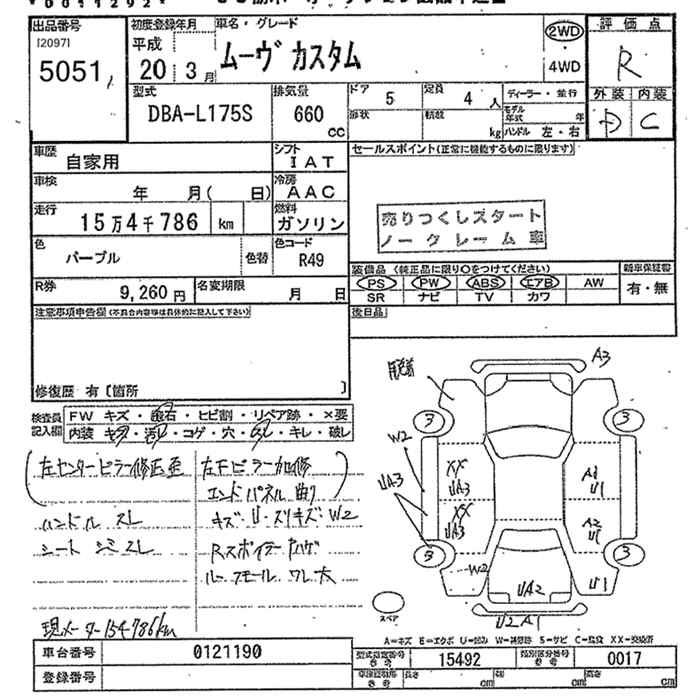 出品番号
[2097]
5051
初度登録年月
平成
20 3月
車名・グレード
ムーヴ カスタム
2WD
4WD
評価点
R
外装 内装
D C
型式
DBA-L175S
排気量
660
CC
ドア
5
定員
4人
形状
積載
kg
ディーラー・並行
モデル年式
年
ハンドル 左・右
車歴
自家用
シフト
IAT
車検
年 月( 日)
冷房
AAC
走行
15万4千786 km
燃料
ガソリン
色
パープル
色替
色コード
R49
R券
9,260円
名変期限
月 日
セールスポイント(正常に機能するものに限ります)
売りつくしスタート
ノークレーム車
装備品(純正品に限り○をつけてください)
PS PW ABS エアB AW
SR ナビ TV カワ
新車保証書
有・無
注意事項申告欄(不具合内容等は具体的に記入して下さい)
後日品
修復歴 有〔箇所 〕
検査員記入欄
FW キズ・飛石・ヒビ割・リペア跡・×要
内装 キズ・汚レ・コゲ・穴・スレ・キレ・破レ
左センターピラー修正歪
エンドパネル曲り
ハンドル スレ
キズ・U・スリキズ W2
シート シミスレ
現メーター154786km
A3
3 3
W2
UA3
XX
UA3
XX
UA3
A3
U1
A2
U1
3 3
W2
UA2
U1
U2 A1
スペア
A=キズ E=エクボ U=凹み W=補修跡 S=サビ C=腐食 XX=交換済
車台番号
0121190
登録番号
型式指定番号
参考
15492
類別区分番号
参考
0017
長さ
cm
幅
cm
高さ
cm